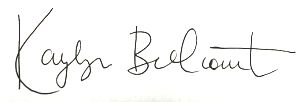 Kaylyn Bellcourt